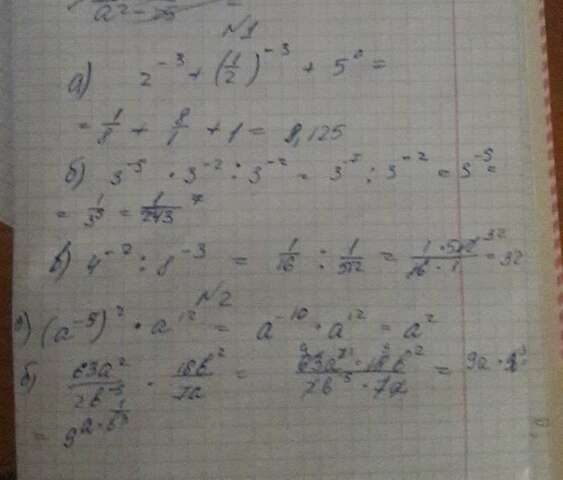 a² - 25
N1
а) 2⁻³ + (1/2)⁻³ + 5⁰ =
= 1/8 + 8/1 + 1 = 9,125
б) 3⁻⁵ · 3⁻² : 3⁻² = 3⁻⁷ : 3⁻² = 3⁻⁵ =
= 1/3⁵ = 1/243
в) 4⁻² : 8⁻³ = 1/16 : 1/512 = 1 · 512/16 · 1 = 32
N2
а) (a⁻⁵)² · a¹² = a⁻¹⁰ · a¹² = a²
б) 63a²/2b⁻⁵ · 18b²/7a = 63a² · 18b²/2b⁻⁵ · 7a =